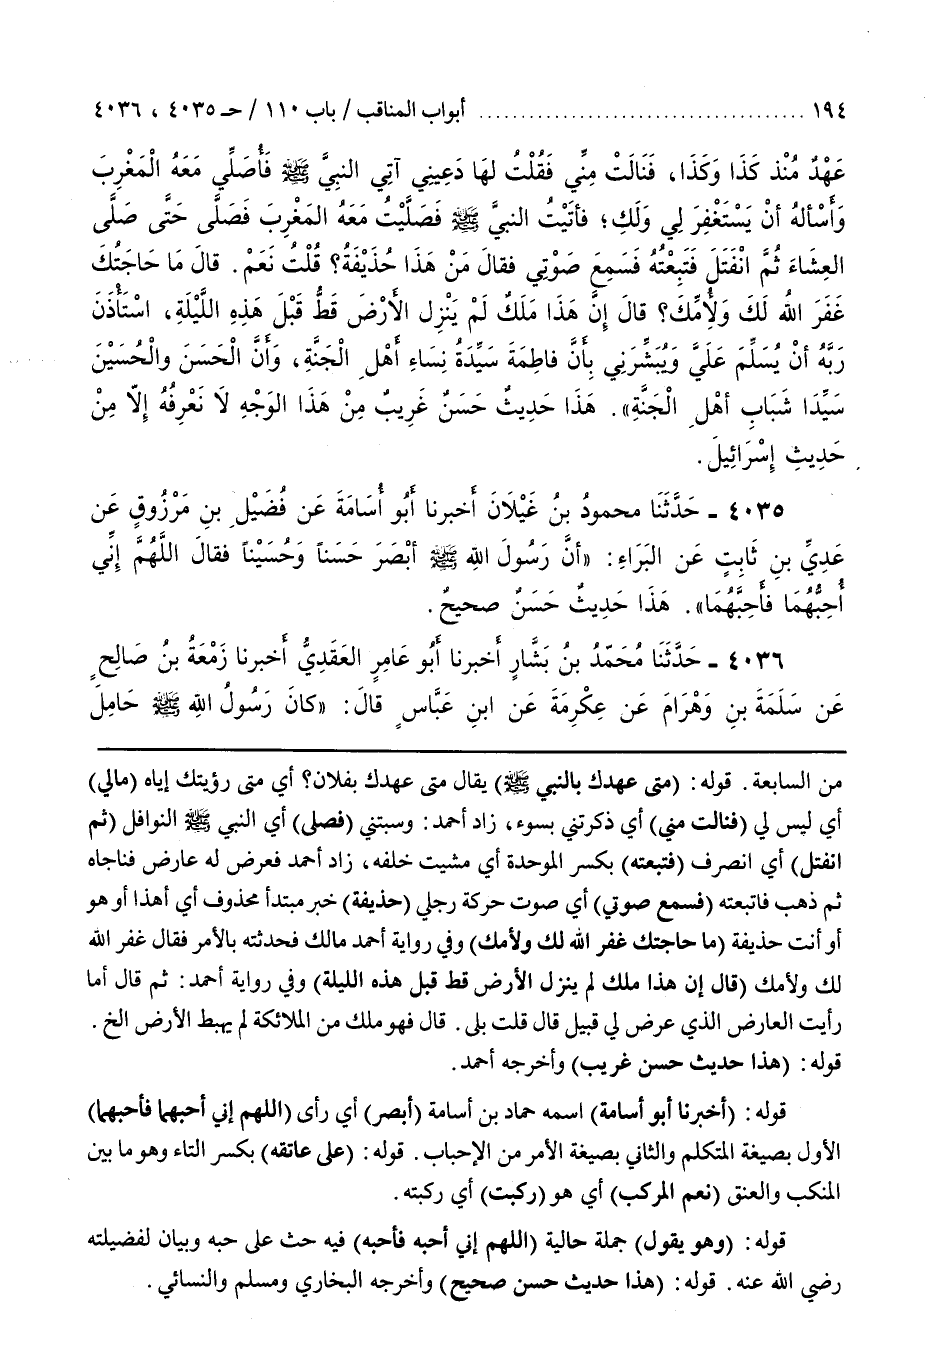 ١٩٤ ........................................ أبواب المناقب / باب ١١٠ / حـ ٤٠٣٥ ، ٤٠٣٦
عَهْدٌ مُنْذ كَذَا وَكَذَا، فَنَالَتْ مِنِّي فَقُلْتُ لهَا دَعِيني آتِي النبيَّ ﷺ فَأُصَلِّي مَعَهُ الْمَغْرِبَ
وَأَسْألهُ أنْ يَسْتَغْفِرَ لِي وَلَكِ؛ فأتَيْتُ النبيَّ ﷺ فَصَلَّيْتُ مَعَهُ المَغْرِبَ فَصَلَّى حَتَّى صَلَّى
العِشاءَ ثُمَّ انْفَتَلَ فَتَبِعْتُهُ فَسَمِعَ صَوْتِي فقالَ مَنْ هَذَا حُذَيْفَةُ؟ قُلْت نَعَمْ. قالَ مَا حَاجَتُكَ
غَفَرَ الله لَكَ وَلأُمِّكَ؟ قالَ إنَّ هَذَا مَلَكٌ لَمْ يَنْزِل الأَرْضَ قَطُّ قَبْلَ هَذِهِ اللَّيْلَةِ، اسْتَأْذَنَ
رَبَّهُ أنْ يُسَلِّمَ عَلَيَّ وَيُبَشِّرَنِي بِأنَّ فاطِمَةَ سَيِّدَةُ نِسَاءِ أَهْلِ الْجَنَّةِ، وَأنَّ الْحَسَنَ والْحُسَيْنَ
سَيِّدَا شَبَابِ أهْلِ الْجَنَّةِ». هَذَا حَدِيثٌ حَسَنٌ غَرِيبٌ مِنْ هَذَا الوَجْهِ لَا نَعْرِفُهُ إلاّ مِنْ
حَدِيثِ إسْرَائِيلَ.
٤٠٣٥ ـ حَدَّثَنَا محمودُ بنُ غَيْلَانَ أخبرنا أَبُو أُسَامَةَ عَن فُضَيْلِ بنِ مَرْزُوقٍ عَن
عَدِيِّ بنِ ثَابِتٍ عَن البَرَاءِ: «أنَّ رَسُولَ الله ﷺ أبْصَرَ حَسَناً وَحُسَيْناً فقالَ اللَّهُمَّ إنِّي
أُحِبُّهُمَا فأَحِبَّهُمَا». هَذَا حَدِيثٌ حَسَنٌ صحيحٌ.
٤٠٣٦ ـ حَدَّثَنَا مُحَمَّدُ بنُ بَشَّارٍ أخبرنا أَبُو عَامِرٍ العَقَدِيُّ أخبرنا زَمْعَةُ بنُ صَالِحٍ
عَن سَلَمَةَ بنِ وَهْرَامَ عَن عِكْرِمَةَ عَن ابنِ عَبَّاسٍ قالَ: «كانَ رَسُولُ اللهِ ﷺ حَامِلَ
من السابعة. قوله: (متى عهدك بالنبي ﷺ) يقال متى عهدك بفلان؟ أي متى رؤيتك إياه (مالي)
أي ليس لي (فنالت مني) أي ذكرتني بسوء، زاد أحمد: وسبتني (فصلى) أي النبي ﷺ النوافل (ثم
انفتل) أي انصرف (فتبعته) بكسر الموحدة أي مشيت خلفه، زاد أحمد فعرض له عارض فناجاه
ثم ذهب فاتبعته (فسمع صوتي) أي صوت حركة رجلي (حذيفة) خبر مبتدأ محذوف أي أهذا أو هو
أو أنت حذيفة (ما حاجتك غفر الله لك ولأمك) وفي رواية أحمد مالك فحدثته بالأمر فقال غفر الله
لك ولأمك (قال إن هذا ملك لم ينزل الأرض قط قبل هذه الليلة) وفي رواية أحمد: ثم قال أما
رأيت العارض الذي عرض لي قبيل قال قلت بلى. قال فهو ملك من الملائكة لم يهبط الأرض الخ.
قوله: (هذا حديث حسن غريب) وأخرجه أحمد.
قوله: (أخبرنا أبو أسامة) اسمه حماد بن أسامة (أبصر) أي رأى (اللهم إني أحبهما فأحبهما)
الأول بصيغة المتكلم والثاني بصيغة الأمر من الإحباب. قوله: (على عاتقه) بكسر التاء وهو ما بين
المنكب والعنق (نعم المركب) أي هو (ركبت) أي ركبته.
قوله: (وهو يقول) جملة حالية (اللهم إني أحبه فأحبه) فيه حث على حبه وبيان لفضيلته
رضي الله عنه. قوله: (هذا حديث حسن صحيح) وأخرجه البخاري ومسلم والنسائي.